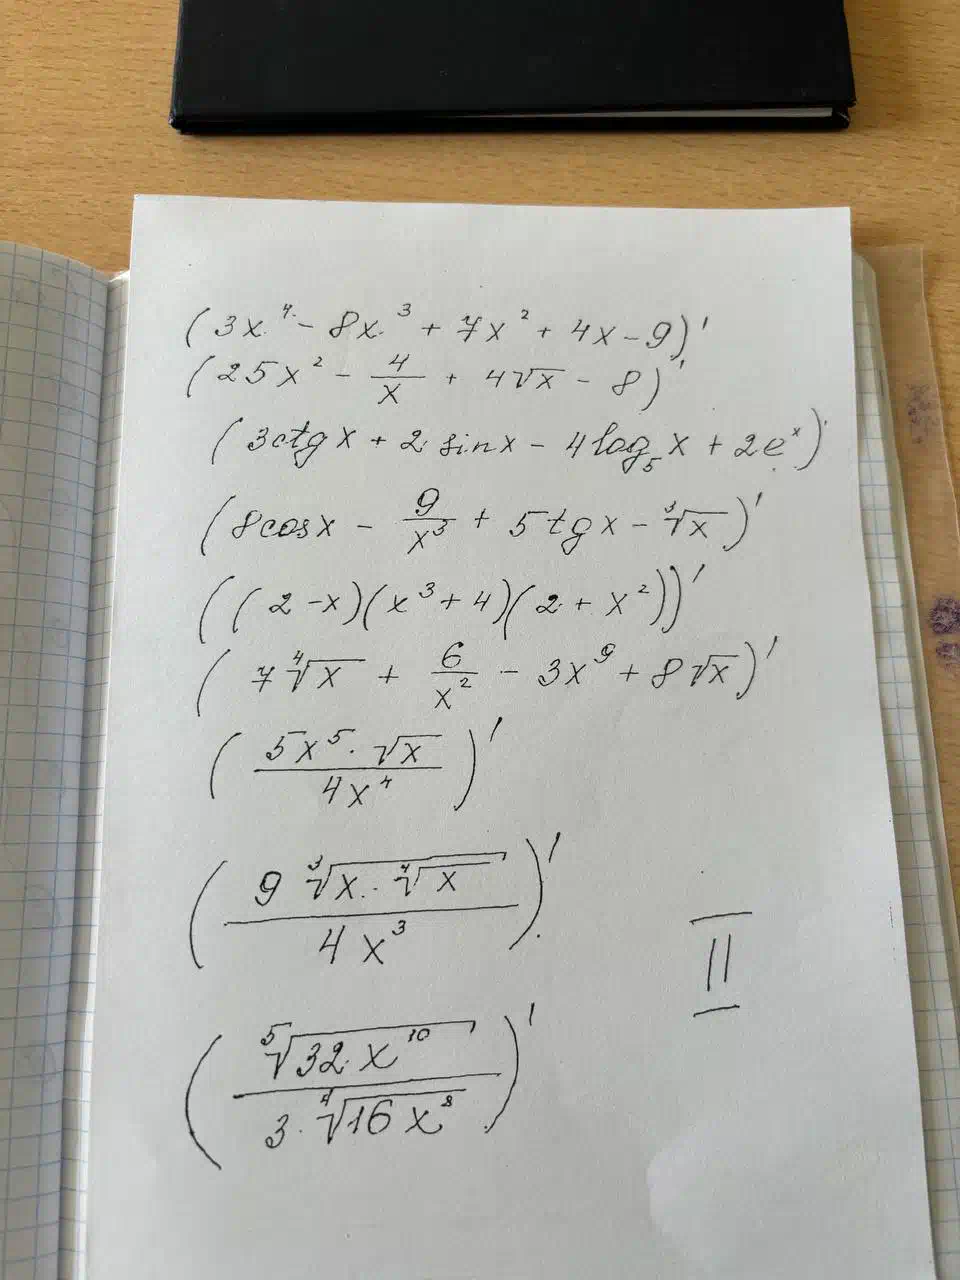 (3x⁴ - 8x³ + 7x² + 4x - 9)'
(25x² - 4/x + 4√x - 8)'
(3ctgx + 2 sinx - 4log₅x + 2eˣ)'
(8cosx - 9/x³ + 5tgx - ³√x)'
((2-x)(x³+4)(2+x²))'
(7⁴√x + 6/x² - 3x⁹ + 8√x)'
(5x⁵·√x / 4x⁴)'
(9 ³√(x·⁴√x) / 4x³)'
II
(⁵√(32x¹⁰) / 3·⁴√(16x⁸))'